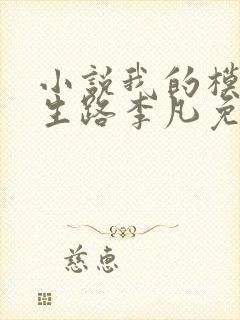 小説我的模
生路李凡免
慈惠